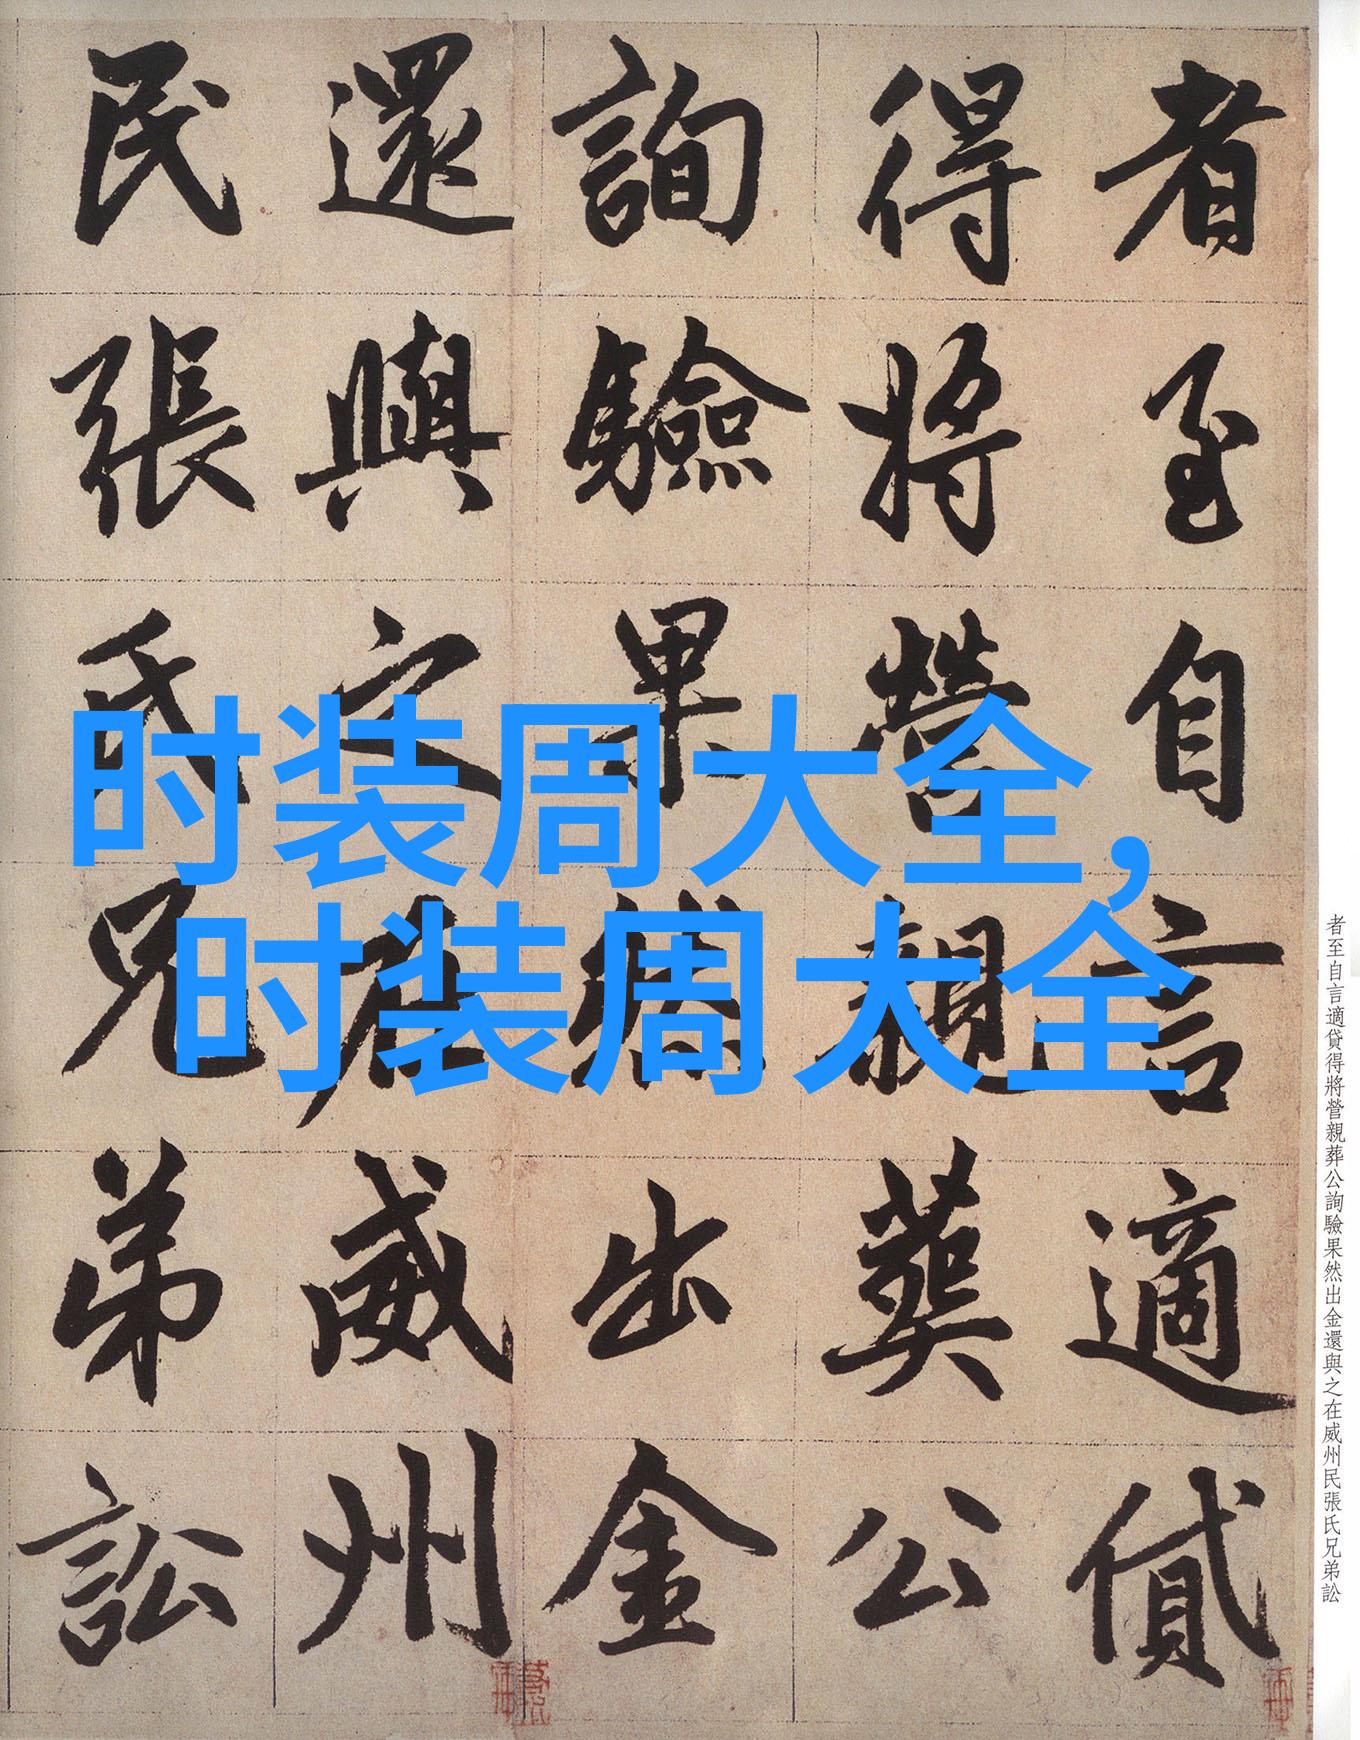 者至自言適貸
得將營親葬公
詢驗果然出金
還與之在威州
民張氏兄弟訟
时装周大全,
时装周大全
者至自言適貸得將營親葬公詢驗果然出金還與之在威州民張氏兄弟訟